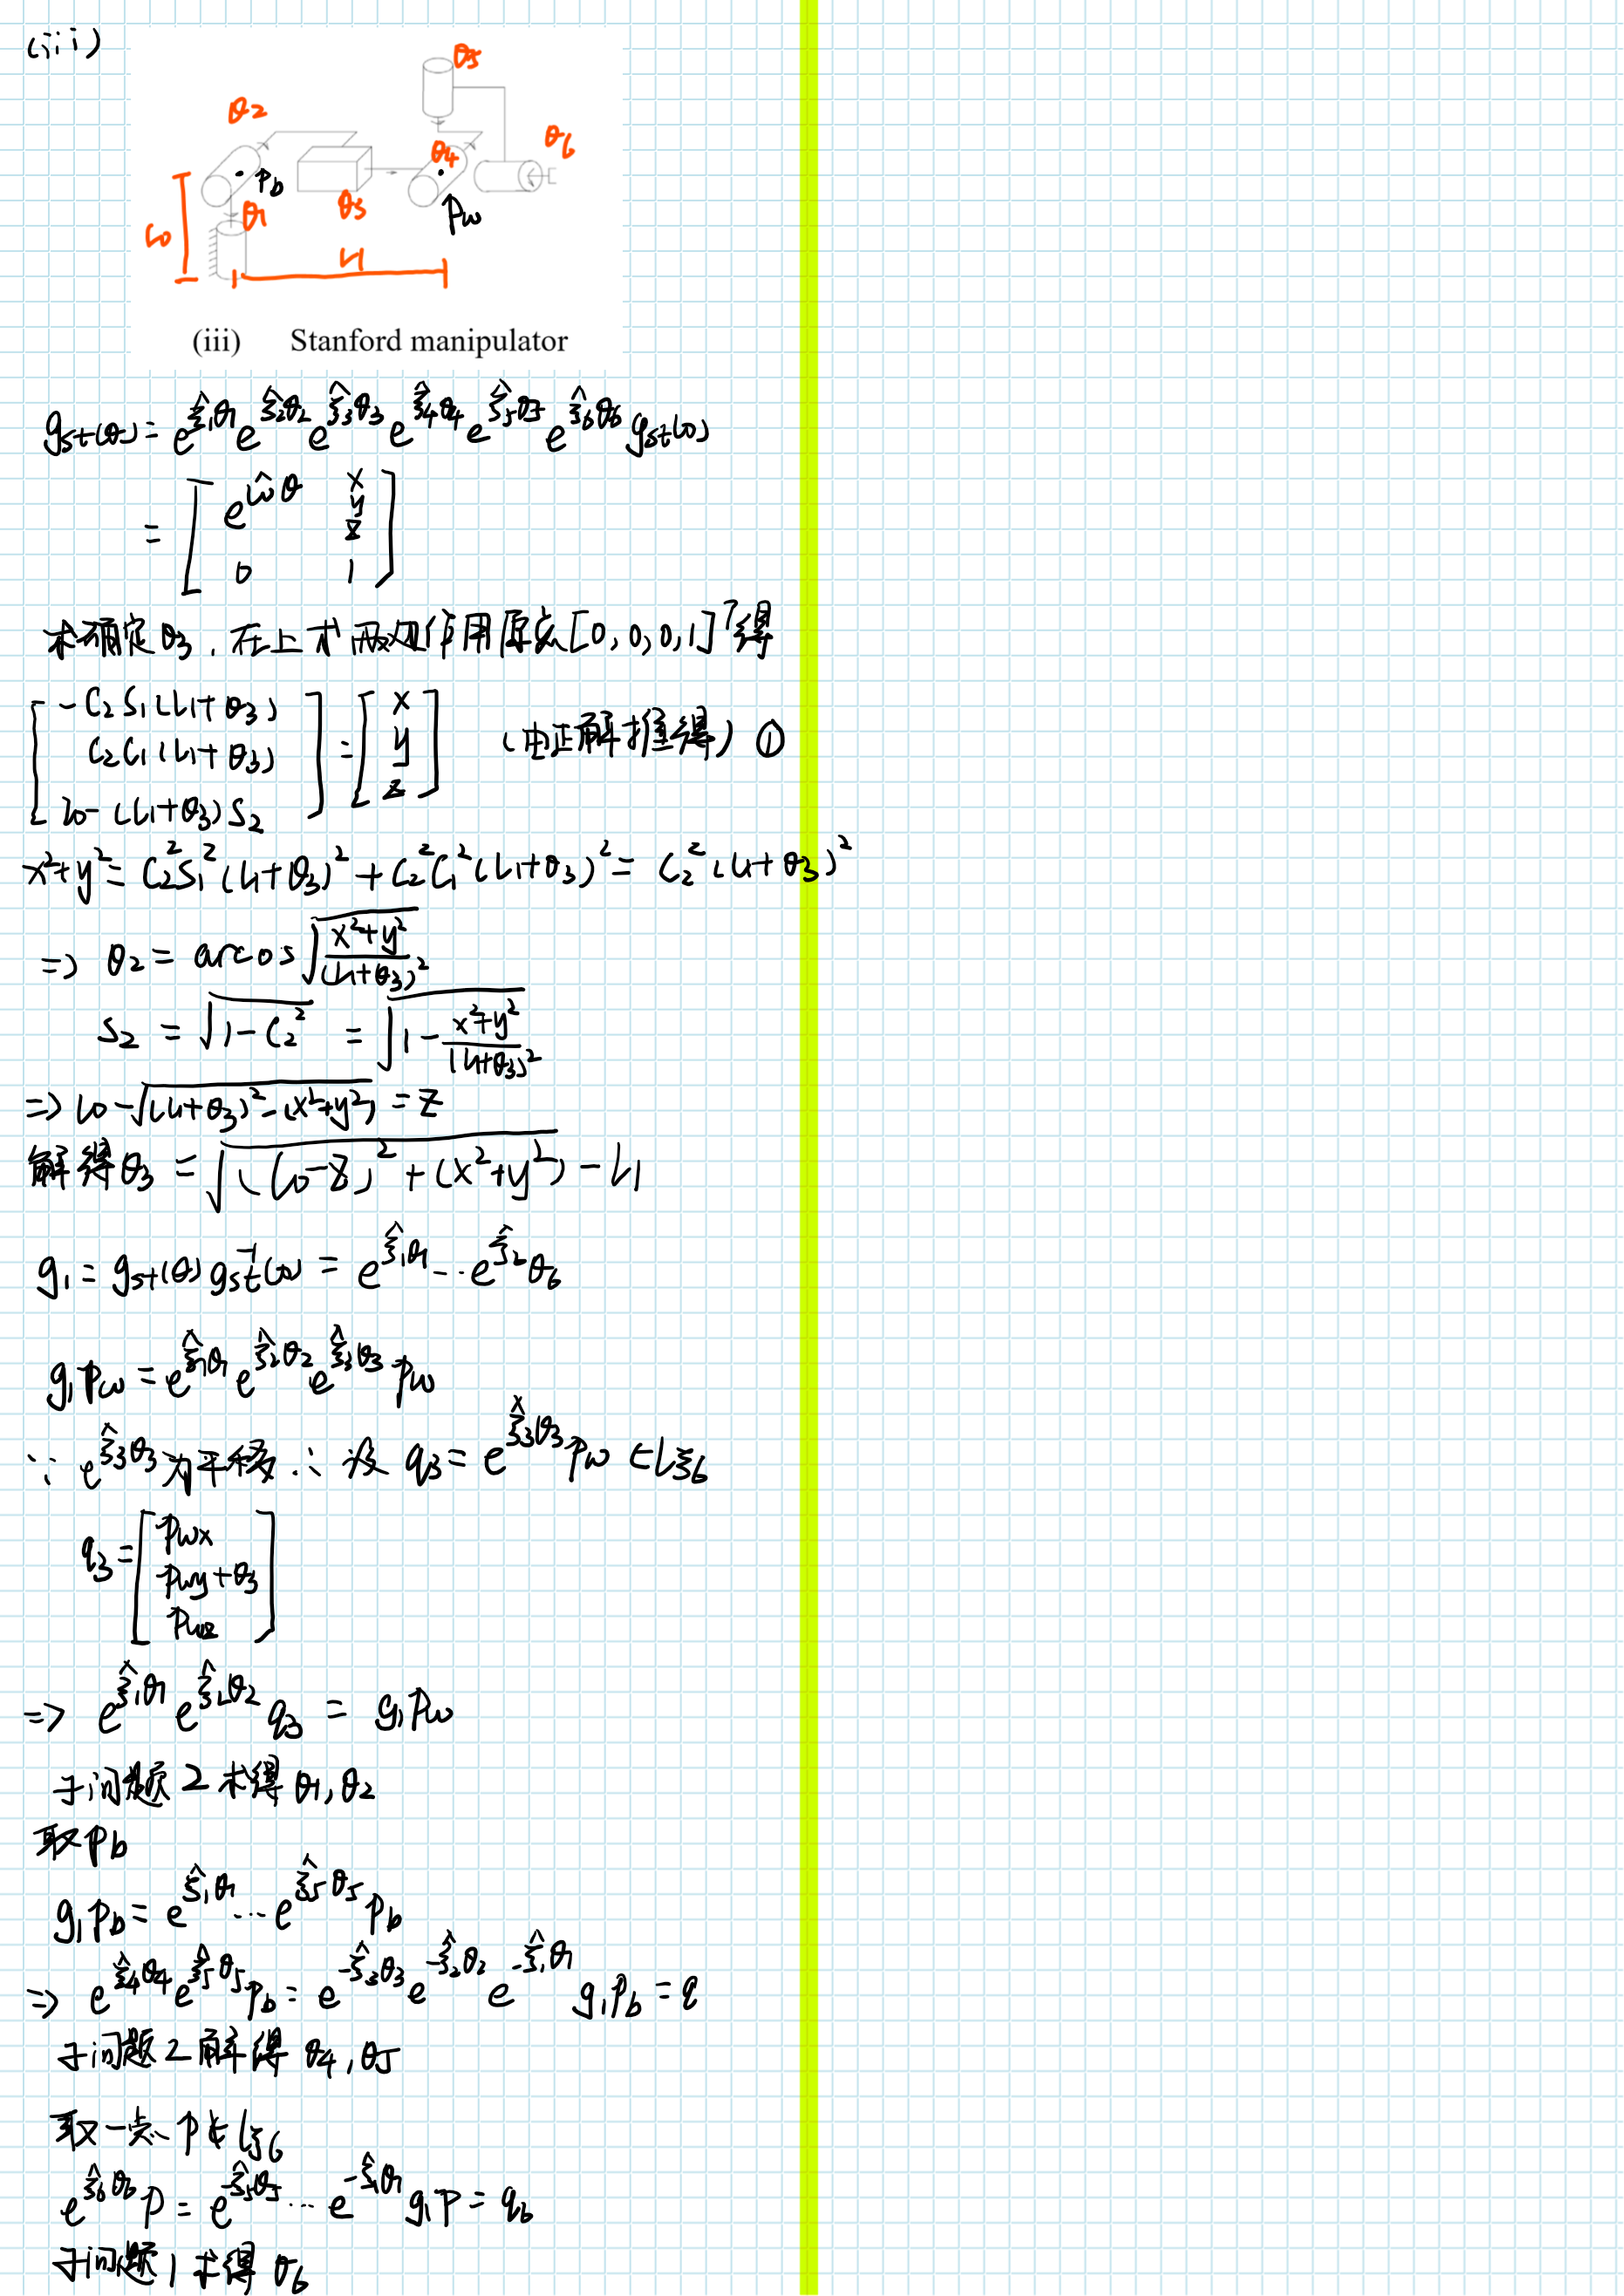 (iii)
θ5
θ2
θ6
θ4
Pb
θ1
θ3
Pw
l0
l1
(iii) Stanford manipulator
g_st(θ) = e^{ξ̂1θ1} e^{ξ̂2θ2} e^{ξ̂3θ3} e^{ξ̂4θ4} e^{ξ̂5θ5} e^{ξ̂6θ6} g_st(0)
= [ e^{ω̂θ} x y z
0 1 ]
求确定θ3, 在上式两边作用原点[0,0,0,1]^T得
[ -C2S1(l1+θ3)
C2C1(l1+θ3)
l0-(l1+θ3)S2 ] = [ x y z ] (由正解推得) ①
x²+y² = C2²S1²(l1+θ3)² + C2²C1²(l1+θ3)² = C2²(l1+θ3)²
=> θ2 = arcos√((x²+y²)/(l1+θ3)²)
S2 = √(1-C2²) = √(1-(x²+y²)/(l1+θ3)²)
=> l0-√((l1+θ3)²-(x²+y²)) = z
解得θ3 = √((l0-z)²+(x²+y²)) - l1
g1 = g_st(θ) g_st^{-1}(0) = e^{ξ̂1θ1} ... e^{ξ̂2}θ6
g1Pw = e^{ξ̂1θ1} e^{ξ̂2θ2} e^{ξ̂3θ3} Pw
∵ e^{ξ̂3θ3}为平移 ∴ 设 q3 = e^{ξ̂3θ3} Pw ∈ lξ6
q3 = [ Pwx
Pwy+θ3
Pwz ]
=> e^{ξ̂1θ1} e^{ξ̂2θ2} q3 = g1Pw
子问题2求得θ1,θ2
取Pb
g1Pb = e^{ξ̂1θ1} ... e^{ξ̂5θ5} Pb
=> e^{ξ̂4θ4} e^{ξ̂5θ5} Pb = e^{-ξ̂3θ3} e^{-ξ̂2θ2} e^{-ξ̂1θ1} g1Pb = q
子问题2解得θ4,θ5
取一点P∉lξ6
e^{ξ̂6θ6} P = e^{-ξ̂5θ5} ... e^{-ξ̂1θ1} g1P = q6
子问题1求得θ6